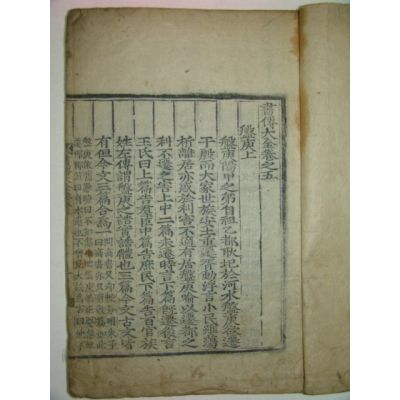 書傳大全卷之五
盤庚上
盤庚陽甲之弟自祖乙都耿圮於河水盤庚欲遷
于殷而大家世族安土重遷胥動浮言小民雖蕩
析離居亦惑於利害不適有居盤庚喻以遷都之
利不遷之害上中二篇未遷時言下篇旣遷後言
王氏曰上篇告羣臣中篇告庶民下篇告百官族
姓左傳謂盤庚之誥實誥體也三篇今文古文皆
有但今文三篇合爲一
問商書又却較分明朱子
曰商書亦只有數篇如此